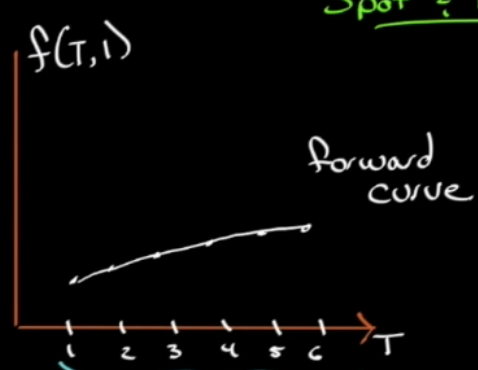 Spot :
f(T,1)
forward
curve
1 2 3 4 5 6 T